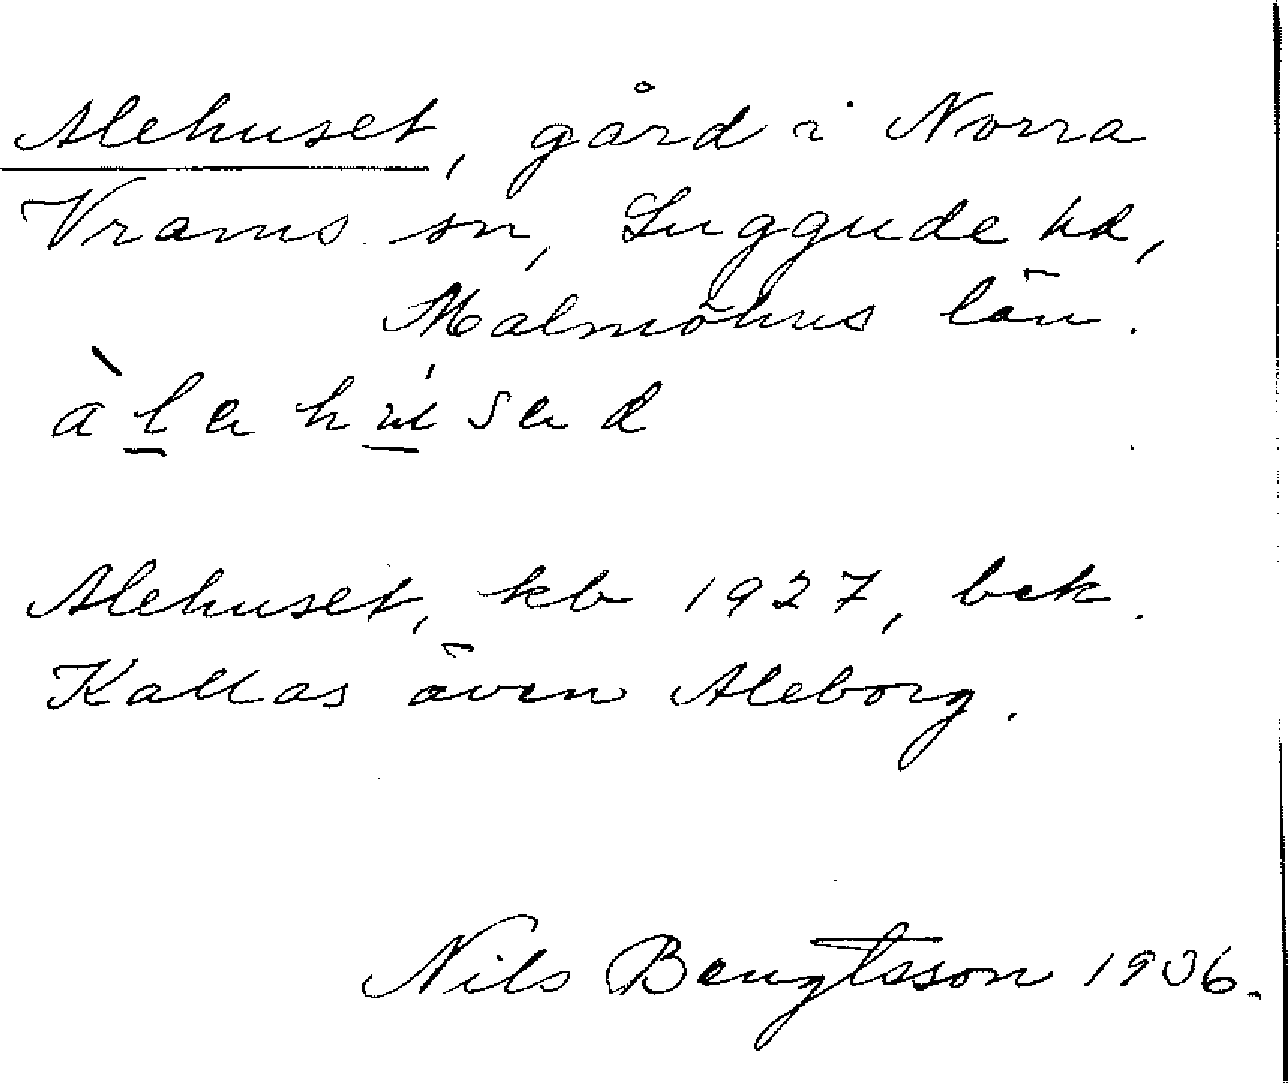 Alehuset, gård i Norra
Vrams sn, Luggude hd,
Malmöhus län.
Alehuset, kb 1927, bek.
Kallas även Aleborg.
Nils Bengtsson 1936.